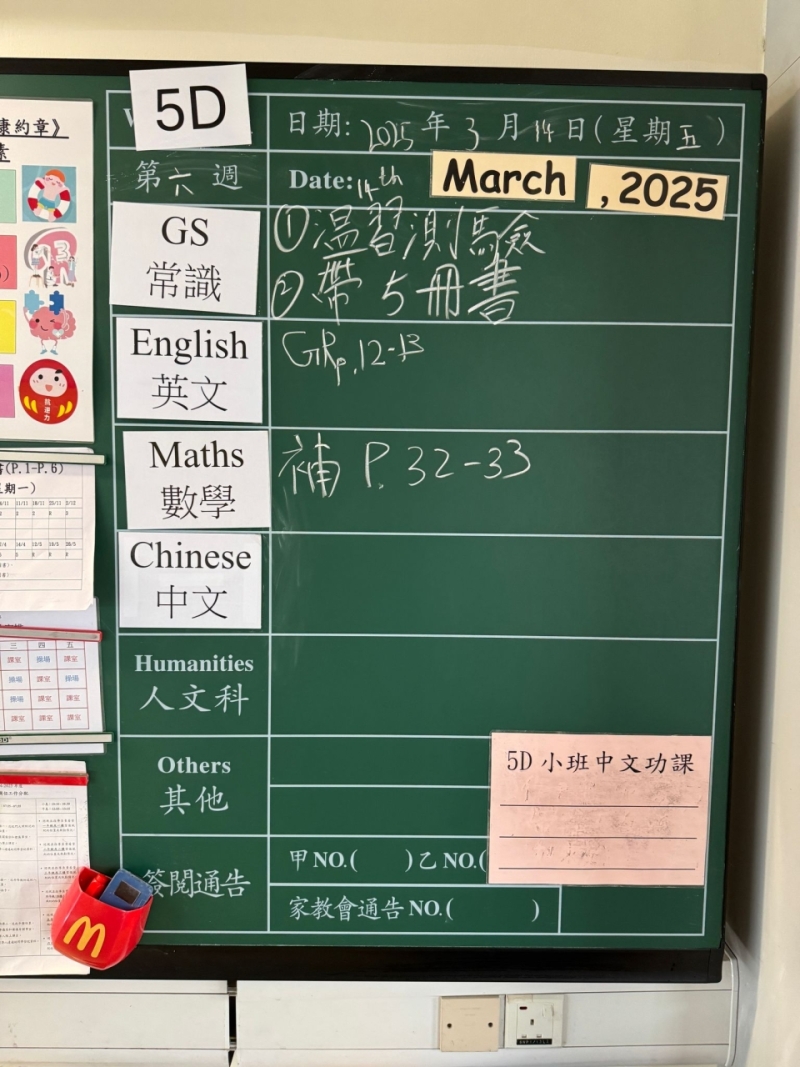 康約章》
素
5D
日期: 2025年3月14日(星期五)
第六週
Date: 14th March , 2025
GS
常識
①温習測驗
②帶5冊書
English
英文
GRp.12-13
Maths
數學
補 P.32-33
Chinese
中文
Humanities
人文科
Others
其他
5D 小班中文功課
簽閱通告
甲NO.( )乙NO.(
家教會通告NO.( )
書(P.1-P.6)
星期一)
三 四 五
課室 操場 課室
操場 課室 操場
操場 課室 課室
課室 課室 課室